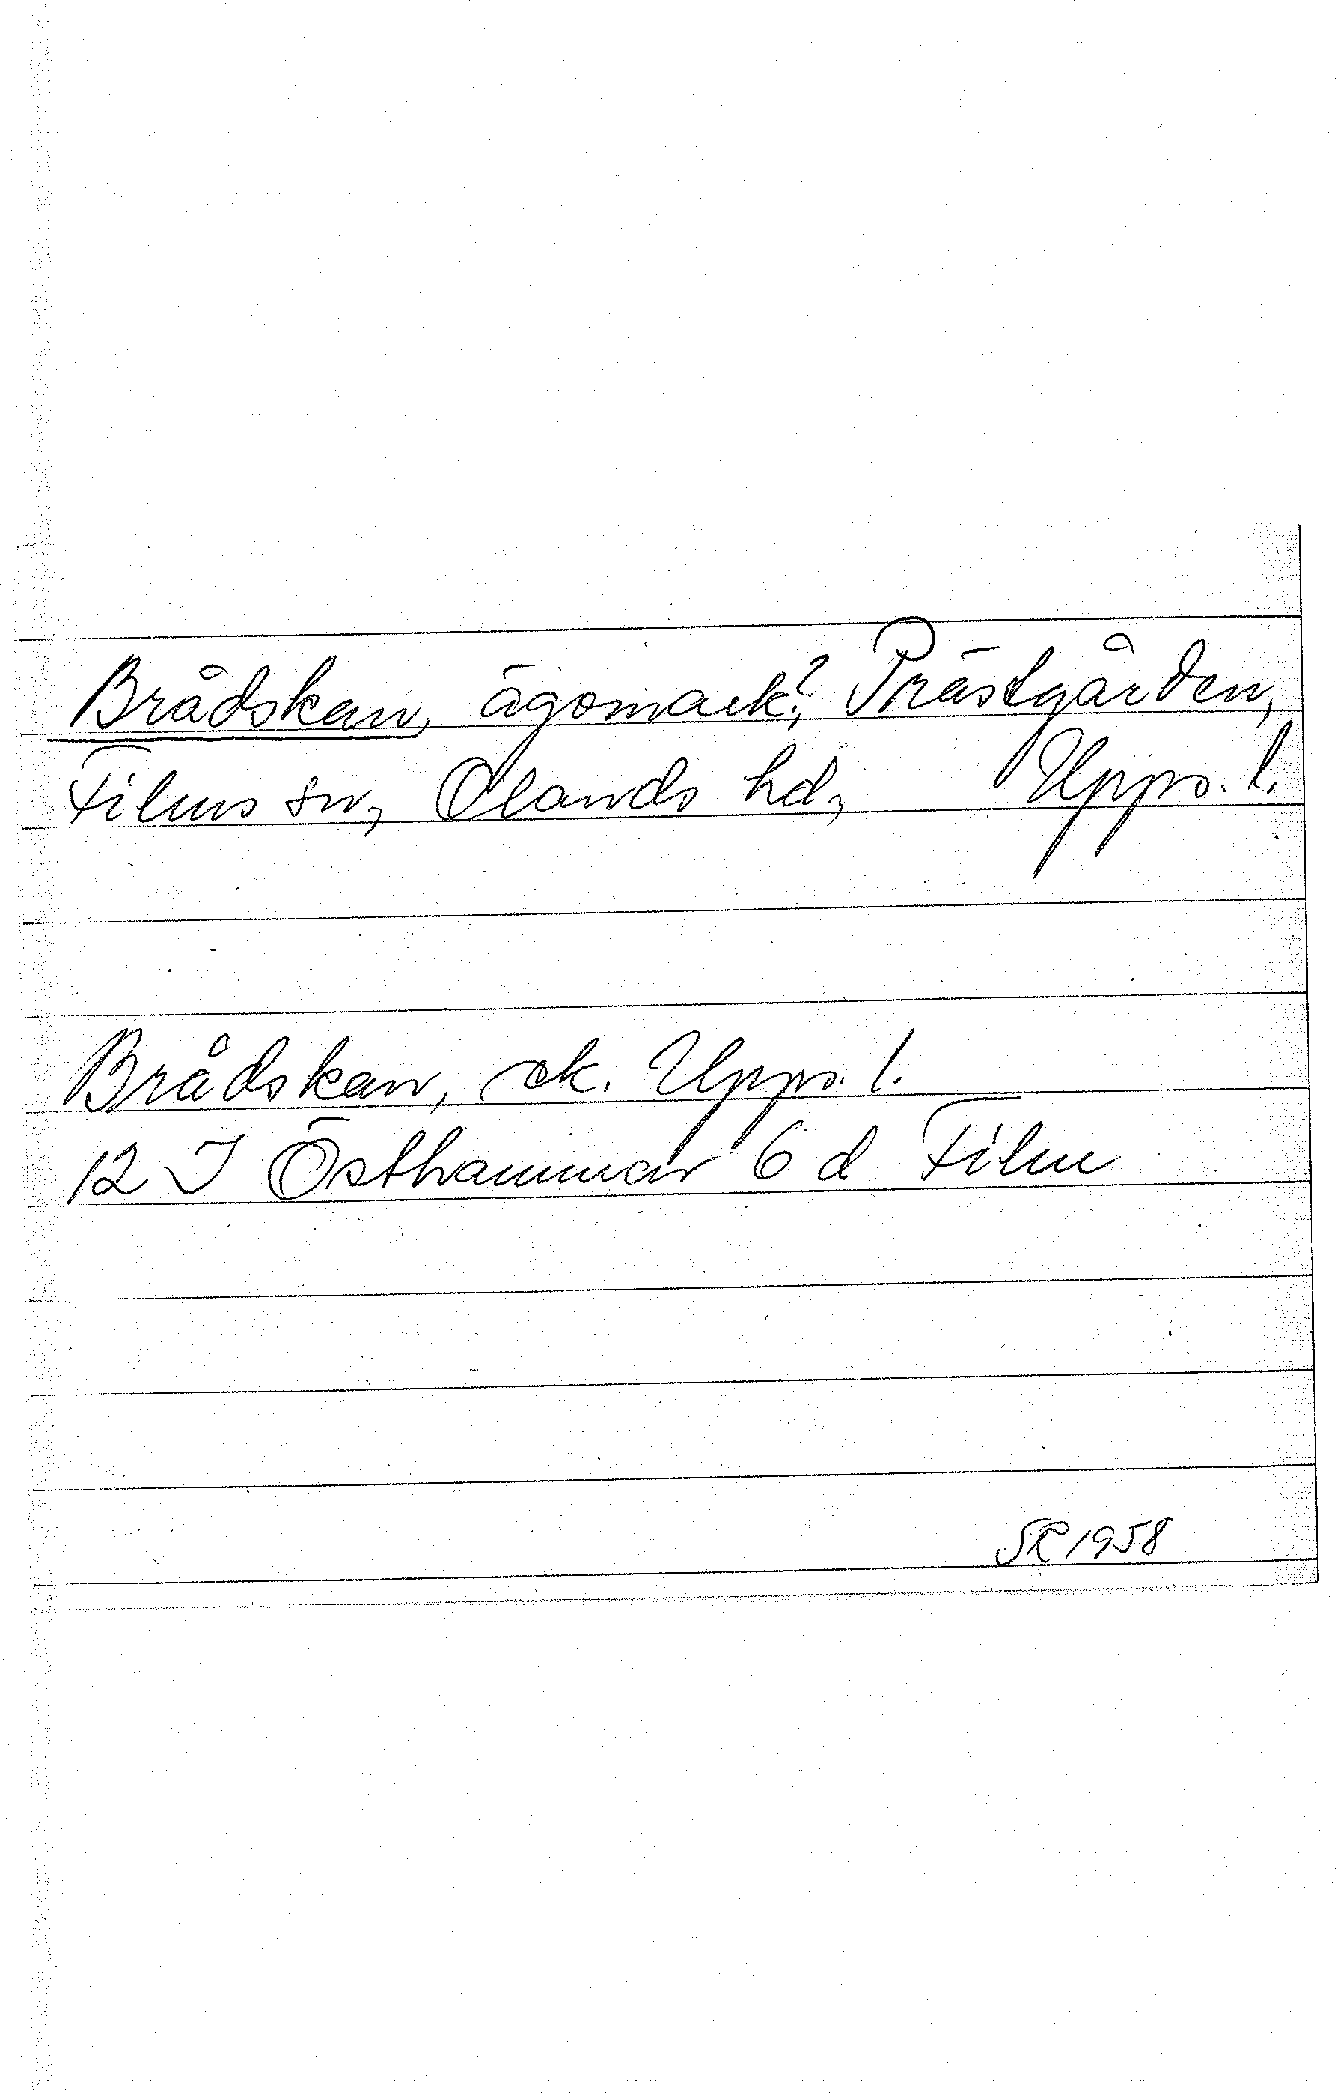 Brådskan, ägomark?, Prästgården,
Films sn, Olands hd, Upps. l.
Brådskan, ek. Upps. l.
12 I Östhammar 6 d Film
SR 1958